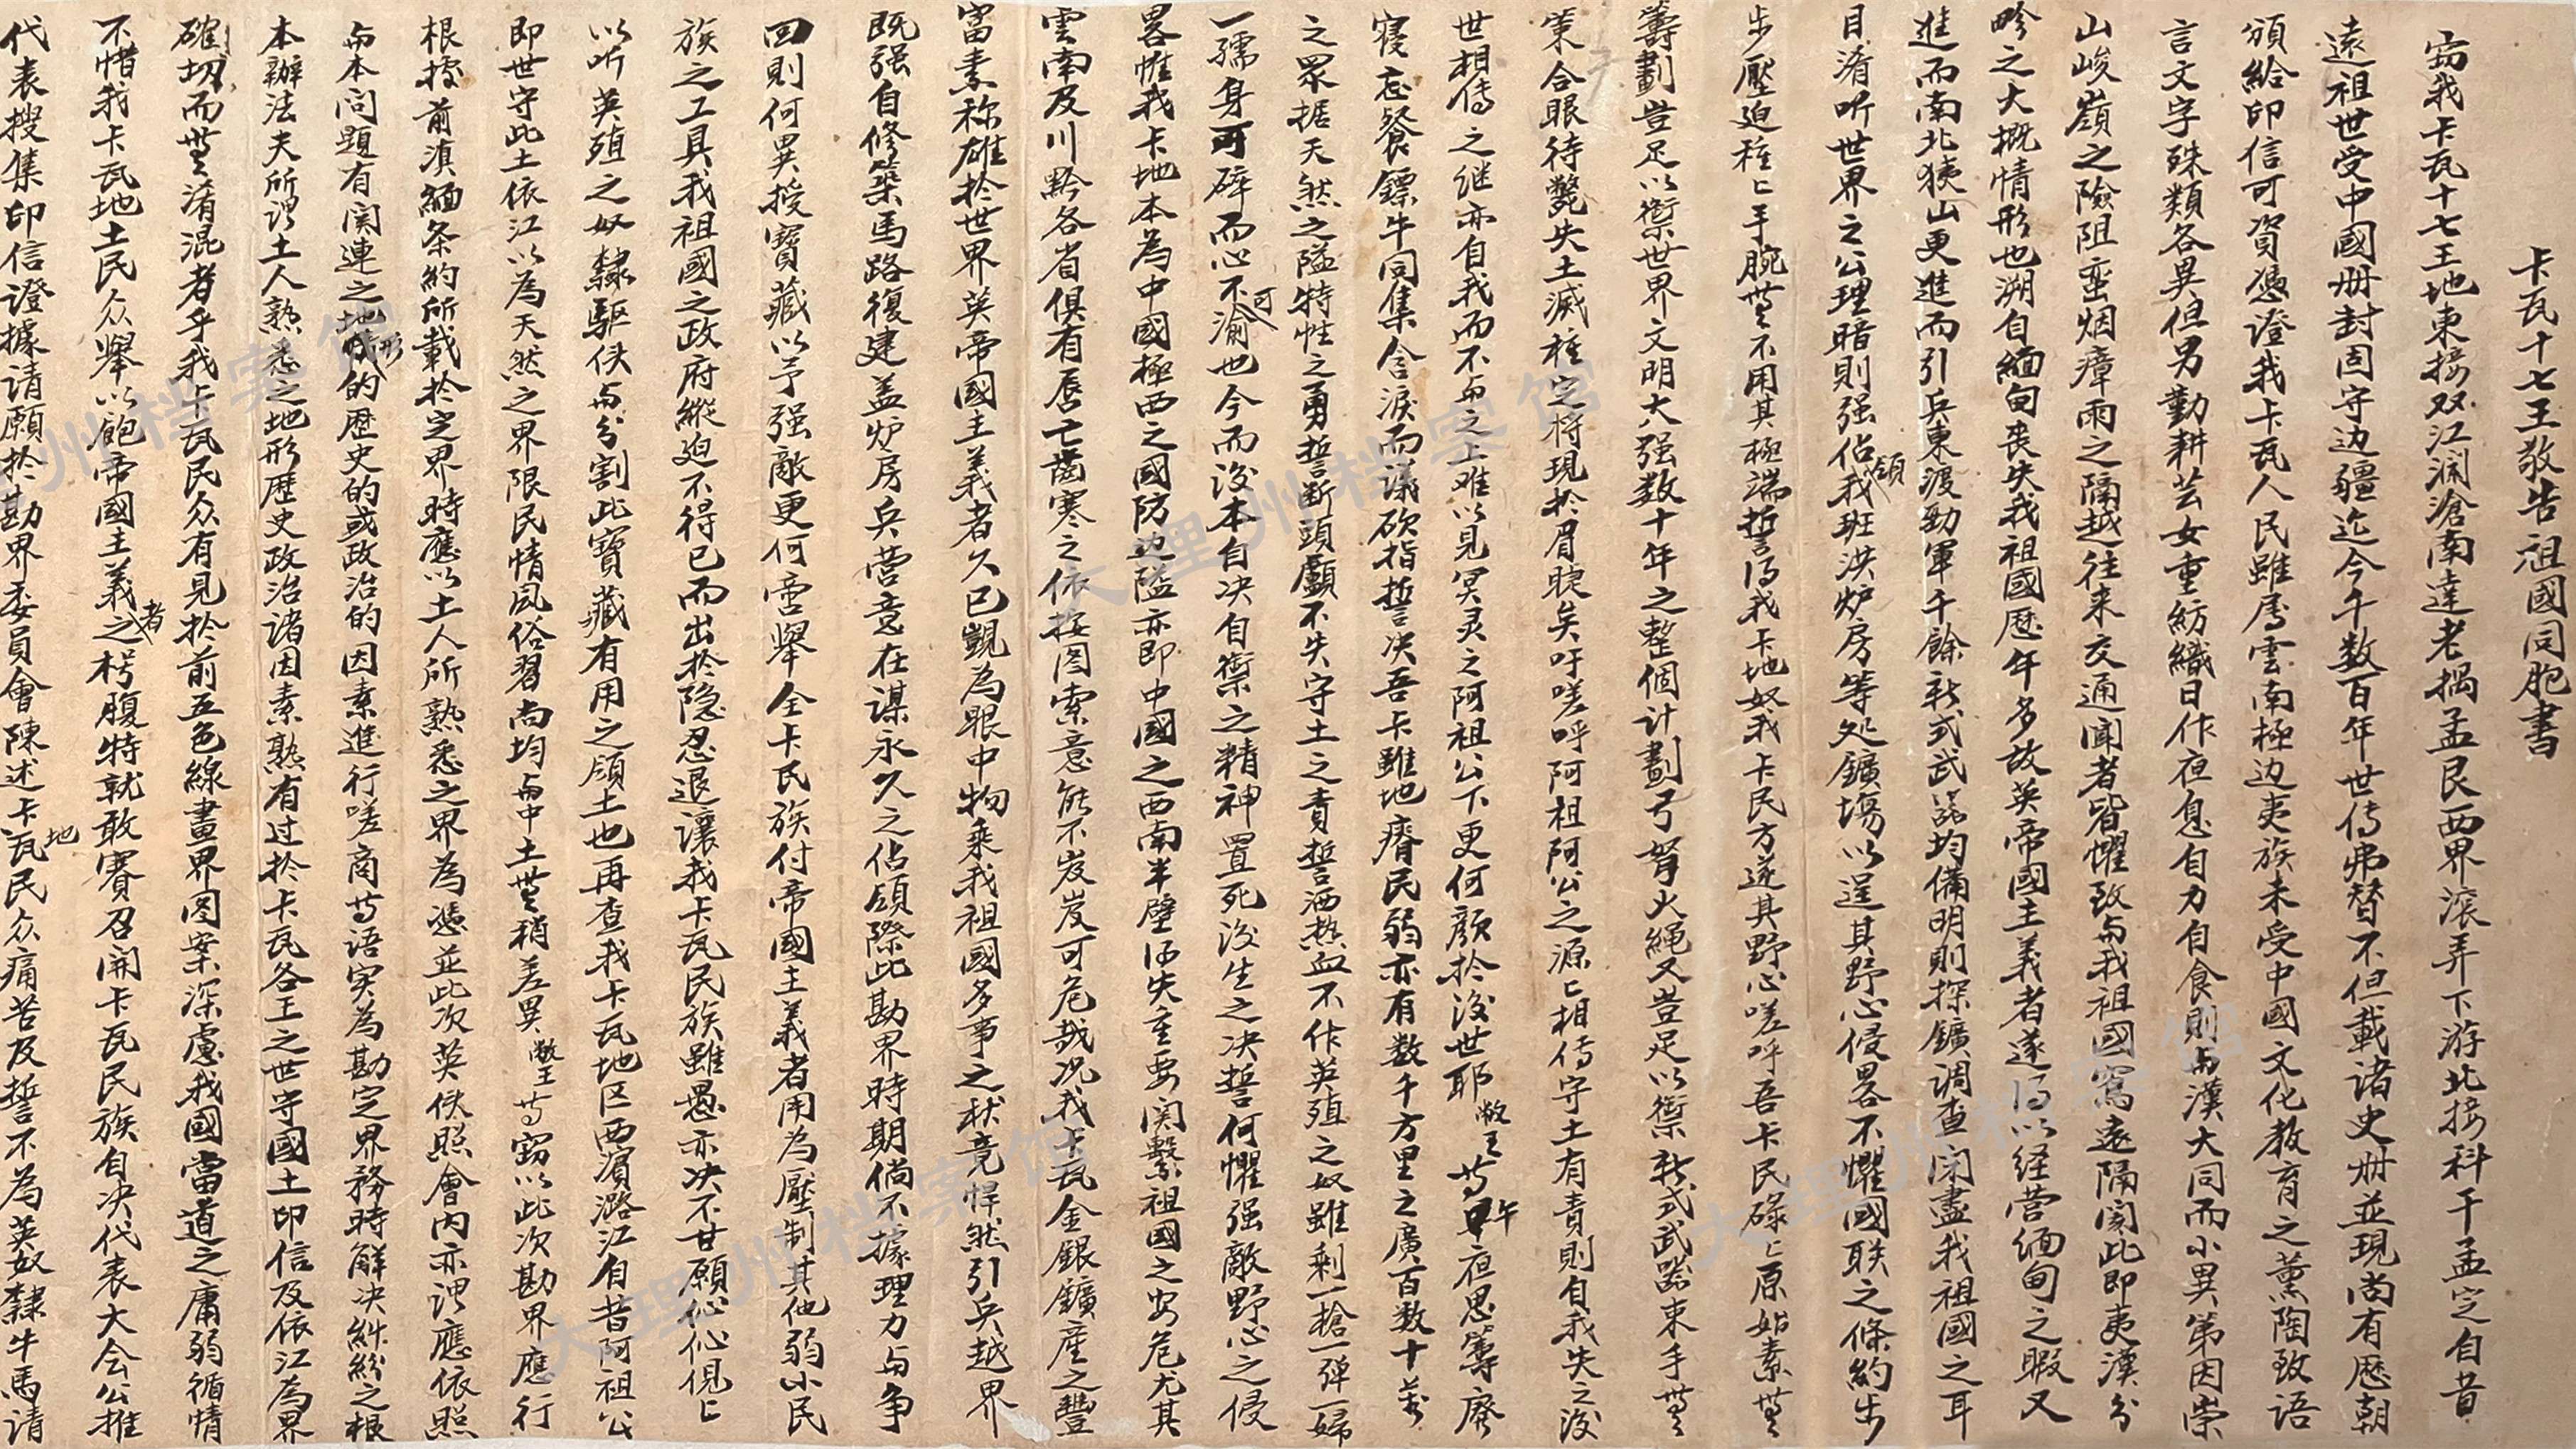 卡瓦十七王敬告祖國同胞書
窃我卡瓦十七王地東接双江瀾滄南達老撾孟艮西界滚弄下游北接科千孟定自昔
遠祖世受中國册封固守边疆迄今千数百年世傳弗替不但載诸史册並現尚有歷朝
頒給印信可資憑證我卡瓦人民雖屬雲南極边夷族未受中國文化教育之薰陶致語
言文字殊類各異但男勤耕芸女重紡織日作夜息自力自食則与漢大同而小異第因崇
山峻嶺之險阻蛮烟瘴雨之隔越往来交通聞者皆懼致与我祖國窩遠隔阂此即夷漢分
畛之大概情形也溯自緬甸丧失我祖國歷年多故英帝國主義者遂得以经营缅甸之暇又
進而南北獚山更進而引兵東渡勁軍千餘新式武器均備明則探鑛调查闲盡我祖國之耳
目淆听世界之公理暗則强佔領我班洪炉房等処鑛塲以逞其野心侵畧不懼國联之條約步
步壓迫种匕手腕無不用其極端誓得我卡地奴我卡民方遂其野心嗟呼吾卡民碌匕原始素無
籌劃豈足以禦世界文明大强数十年之整個计劃弓弩火繩又豈足以禦新式武器束手無
策合眼待斃失土滅種定将現於眉睫矣吁嗟呼阿祖阿公之源匕相傳守土有責則自我失之後
世相傳之继亦自我而不与之上难以見冥灵之阿祖公下更何顏於後世耶敝王等早午夜思籌廢
寝忘餐鏢牛同集含淚而議砍指誓决吾卡雖地瘠民弱亦有数千方里之廣百数十萬
之眾据天然之隘特性之勇誓断頭顱不失守土之責誓洒热血不作英殖之奴雖剩一槍一弹一婦
一孺身可碎而心不可渝也今而後本自决自禦之精神置死後生之决誓何懼强敵野心之侵
畧惟我卡地本為中國極西之國防边隘亦即中國之西南半壁而失重要関繫祖國之安危尤其
雲南及川黔各省俱有唇亡齒寒之依按图索意能不岌岌可危哉况我卡瓦金銀鑛産之豐
富素称雄於世界英帝國主義者久已覬為眼中物乘我祖國多事之秋竟悍然引兵越界
既强自修築馬路復建盖炉房兵营意在谋永久之佔領際此勘界時期倘不據理力与争
回則何異授寶藏以予强敵更何啻舉全卡民族付帝國主義者用為壓制其他弱小民
族之工具我祖國之政府縱迫不得已而出於隐忍退讓我卡瓦民族雖愚亦决不甘願伈伈俔匕
以听英殖之奴隸驅佚与分割此寶藏有用之領土也再查我卡瓦地区西濵潞江自昔阿祖公
即世守此土依江以為天然之界限民情风俗習尚均与中土無稍差異敝王等窃以此次勘界應行
根據前滇緬条約所載於定界時應以土人所熟悉之界為憑並此次英佚照會内亦謂應依照
与本问題有関連之地形的歷史的或政治的因素進行嗟商等语实為勘定界務時解决纠纷之根
本辦法夫所謂土人熟悉之地形歷史政治诸因素熟有过於卡瓦各王之世守國土印信及依江為界
確切而無淆混者乎我卡瓦民众有見於前五色線畫界图案深慮我國當道之庸弱循情
不惜我卡瓦地土民众舉以飽帝國主義者之枵腹特就敢賽召開卡瓦民族自决代表大会公推
代表搜集印信證據请願於勘界委員會陳述卡瓦地民众痛苦及誓不為英奴隸牛馬请